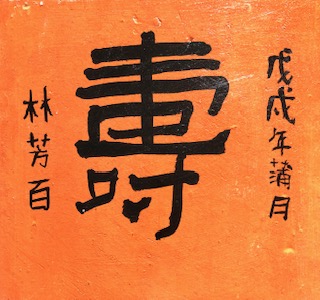 戊戌年蒲月
壽
林芳百